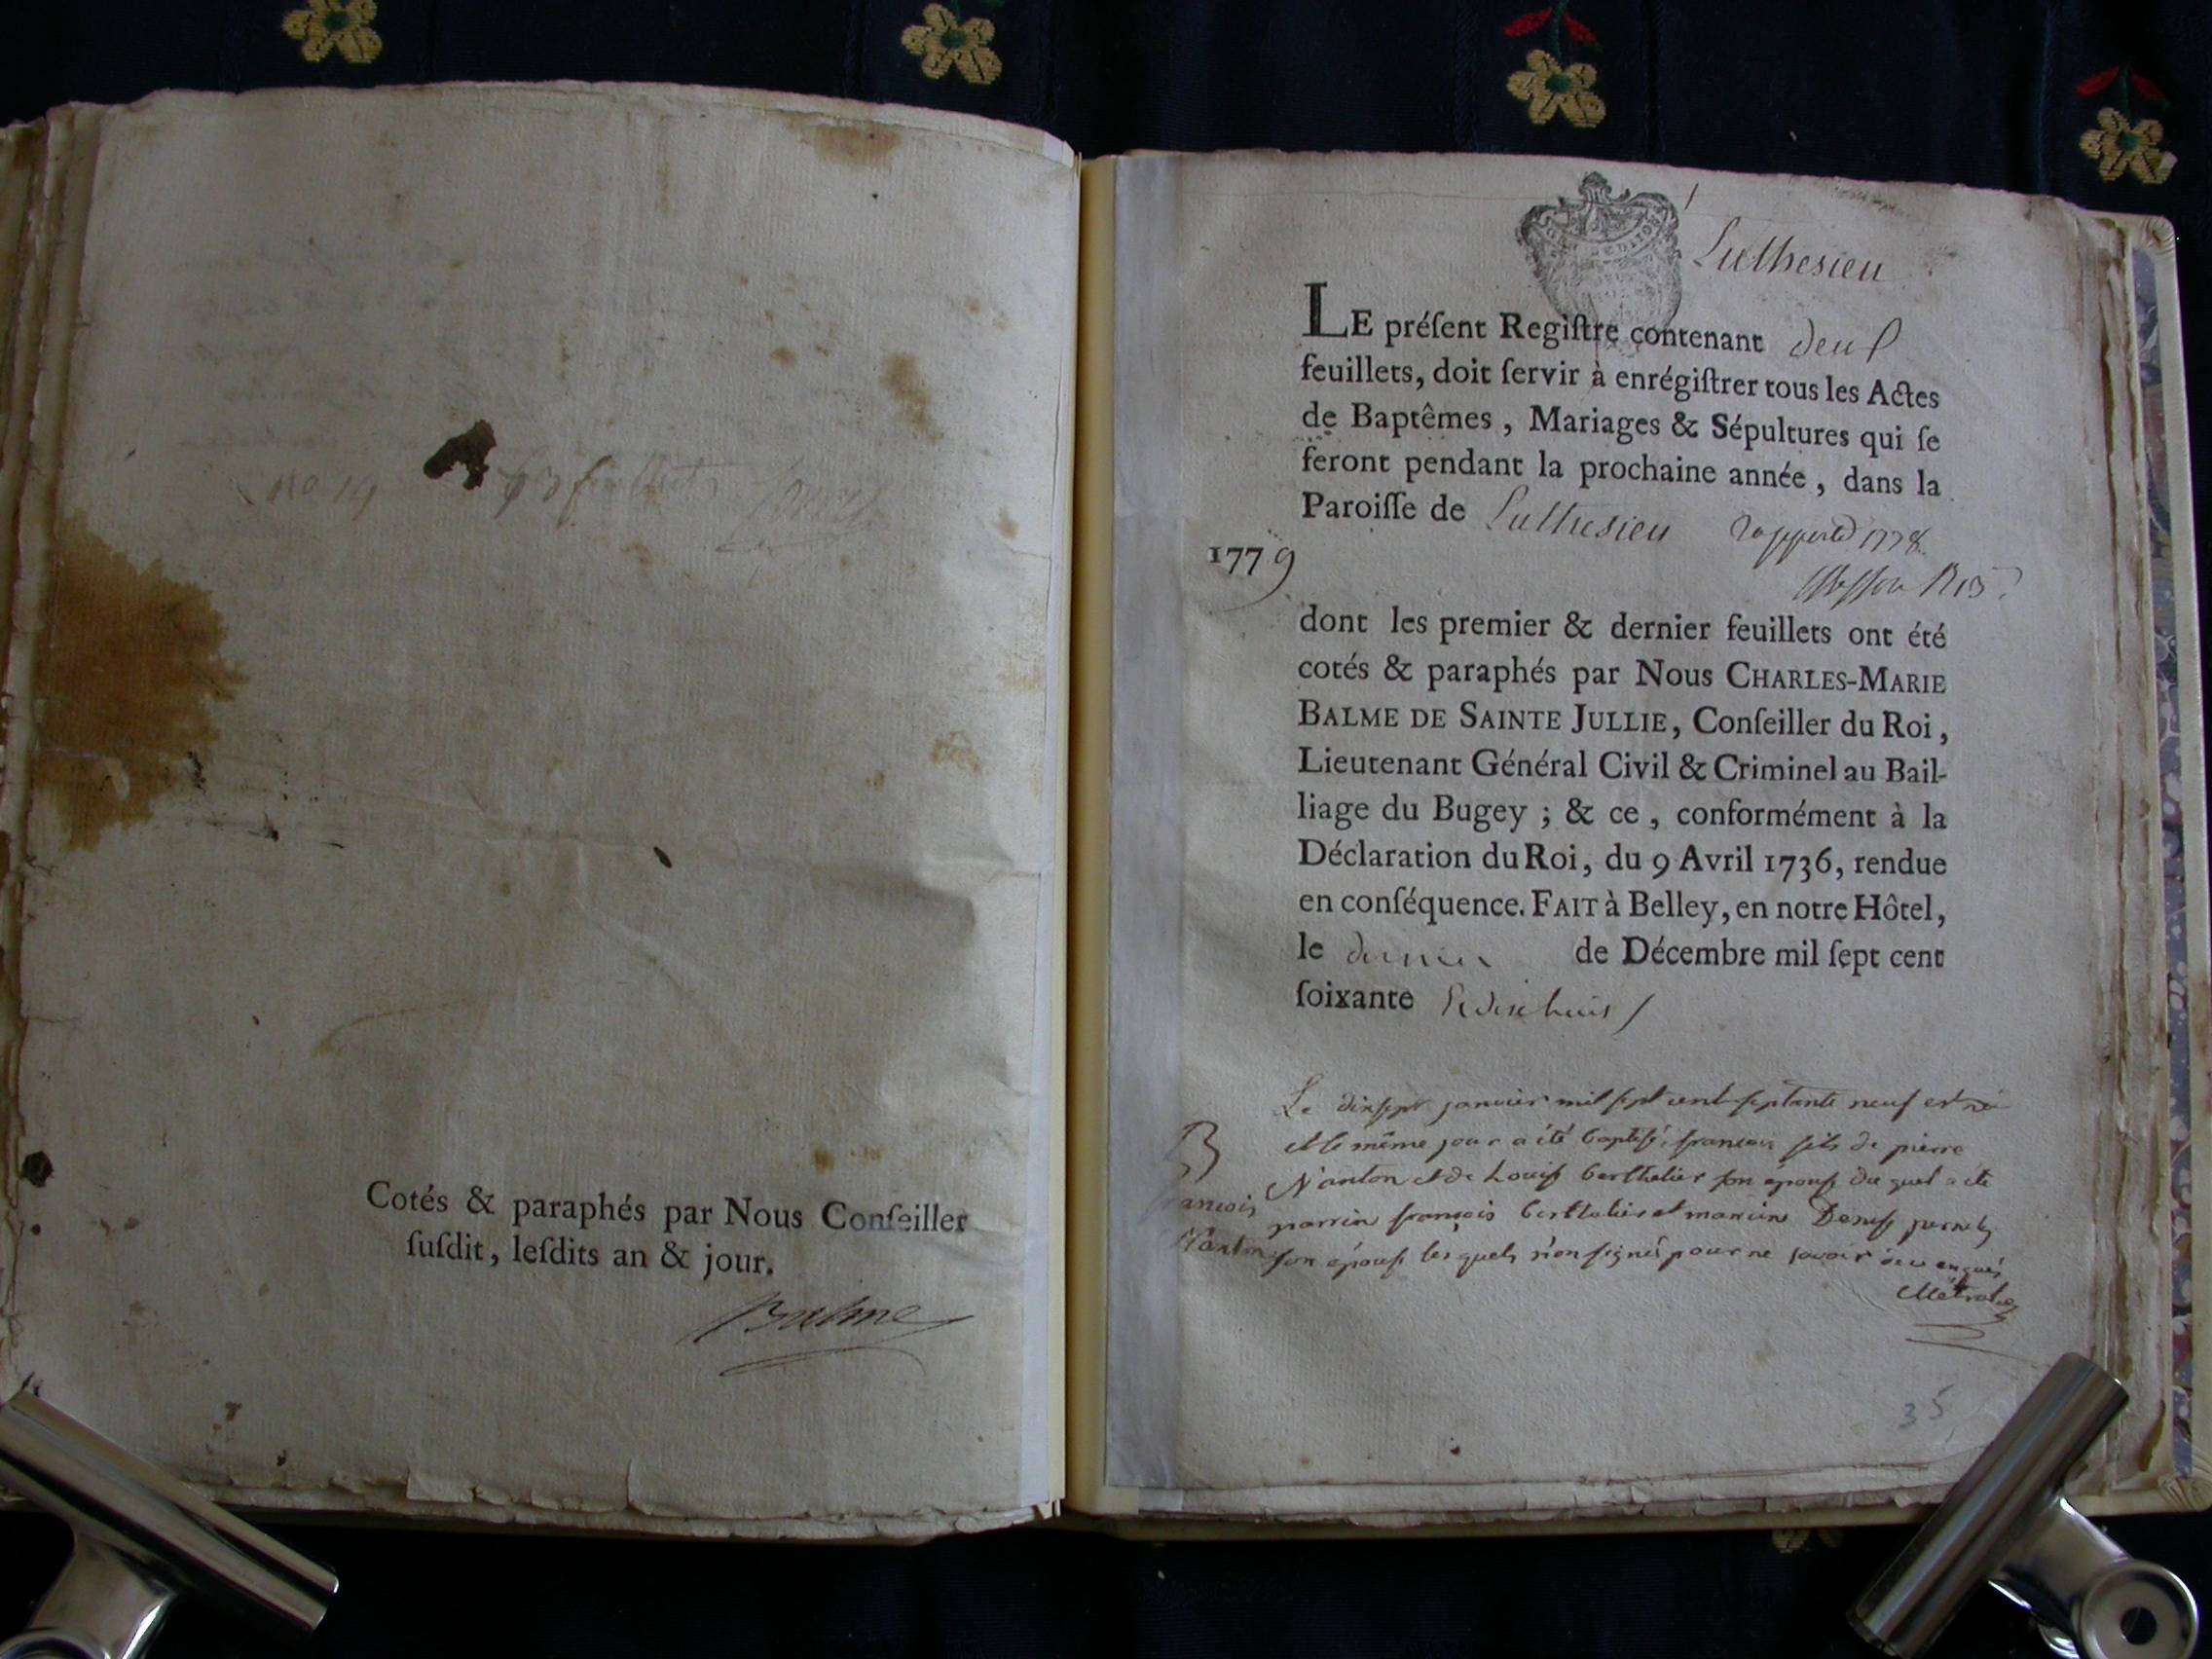 no 19
Cotés & paraphés par Nous Conſeiller
ſuſdit, leſdits an & jour.
Balme
Luthesieu
LE préſent Regiſtre contenant deux
feuillets, doit ſervir à enrégiſtrer tous les Actes
de Baptêmes, Mariages & Sépultures qui ſe
feront pendant la prochaine année, dans la
Paroiſſe de Luthesieu 1778
1779
dont les premier & dernier feuillets ont été
cotés & paraphés par Nous CHARLES-MARIE
BALME DE SAINTE JULLIE, Conſeiller du Roi,
Lieutenant Général Civil & Criminel au Bail-
liage du Bugey ; & ce, conformément à la
Déclaration du Roi, du 9 Avril 1736, rendue
en conſéquence. FAIT à Belley, en notre Hôtel,
le dernier de Décembre mil ſept cent
ſoixante et dix huit
Le dixsept janvier mil sept cent septante neuf est né
B et le même jour a été baptisé françois fils de pierre
Nanton et de Louise berthelier son épouse du quel a été
ancois parrin françois berthelier et marrine Denise
Nanton son épouse les quels n'on signés pour ne savoir de ce enquis
35